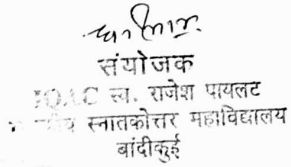 संयोजक
IQAC स्व. राजेश पायलट
स्नातकोत्तर महाविद्यालय
बांदीकुई